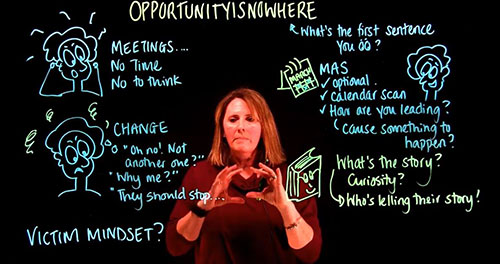 OPPORTUNITYISNOWHERE
MEETINGS....
No Time
No to think
CHANGE
"Oh no! Not
another one?"
"Why me?"
"They should stop....
VICTIM MINDSET?
What's the first sentence
you öö?
MARCH
MAS
✓ optional
✓ Calendar scan
✓ How are you leading?
(Cause something to
happen?
What's the story?
Curiosity?
Who's telling their story!